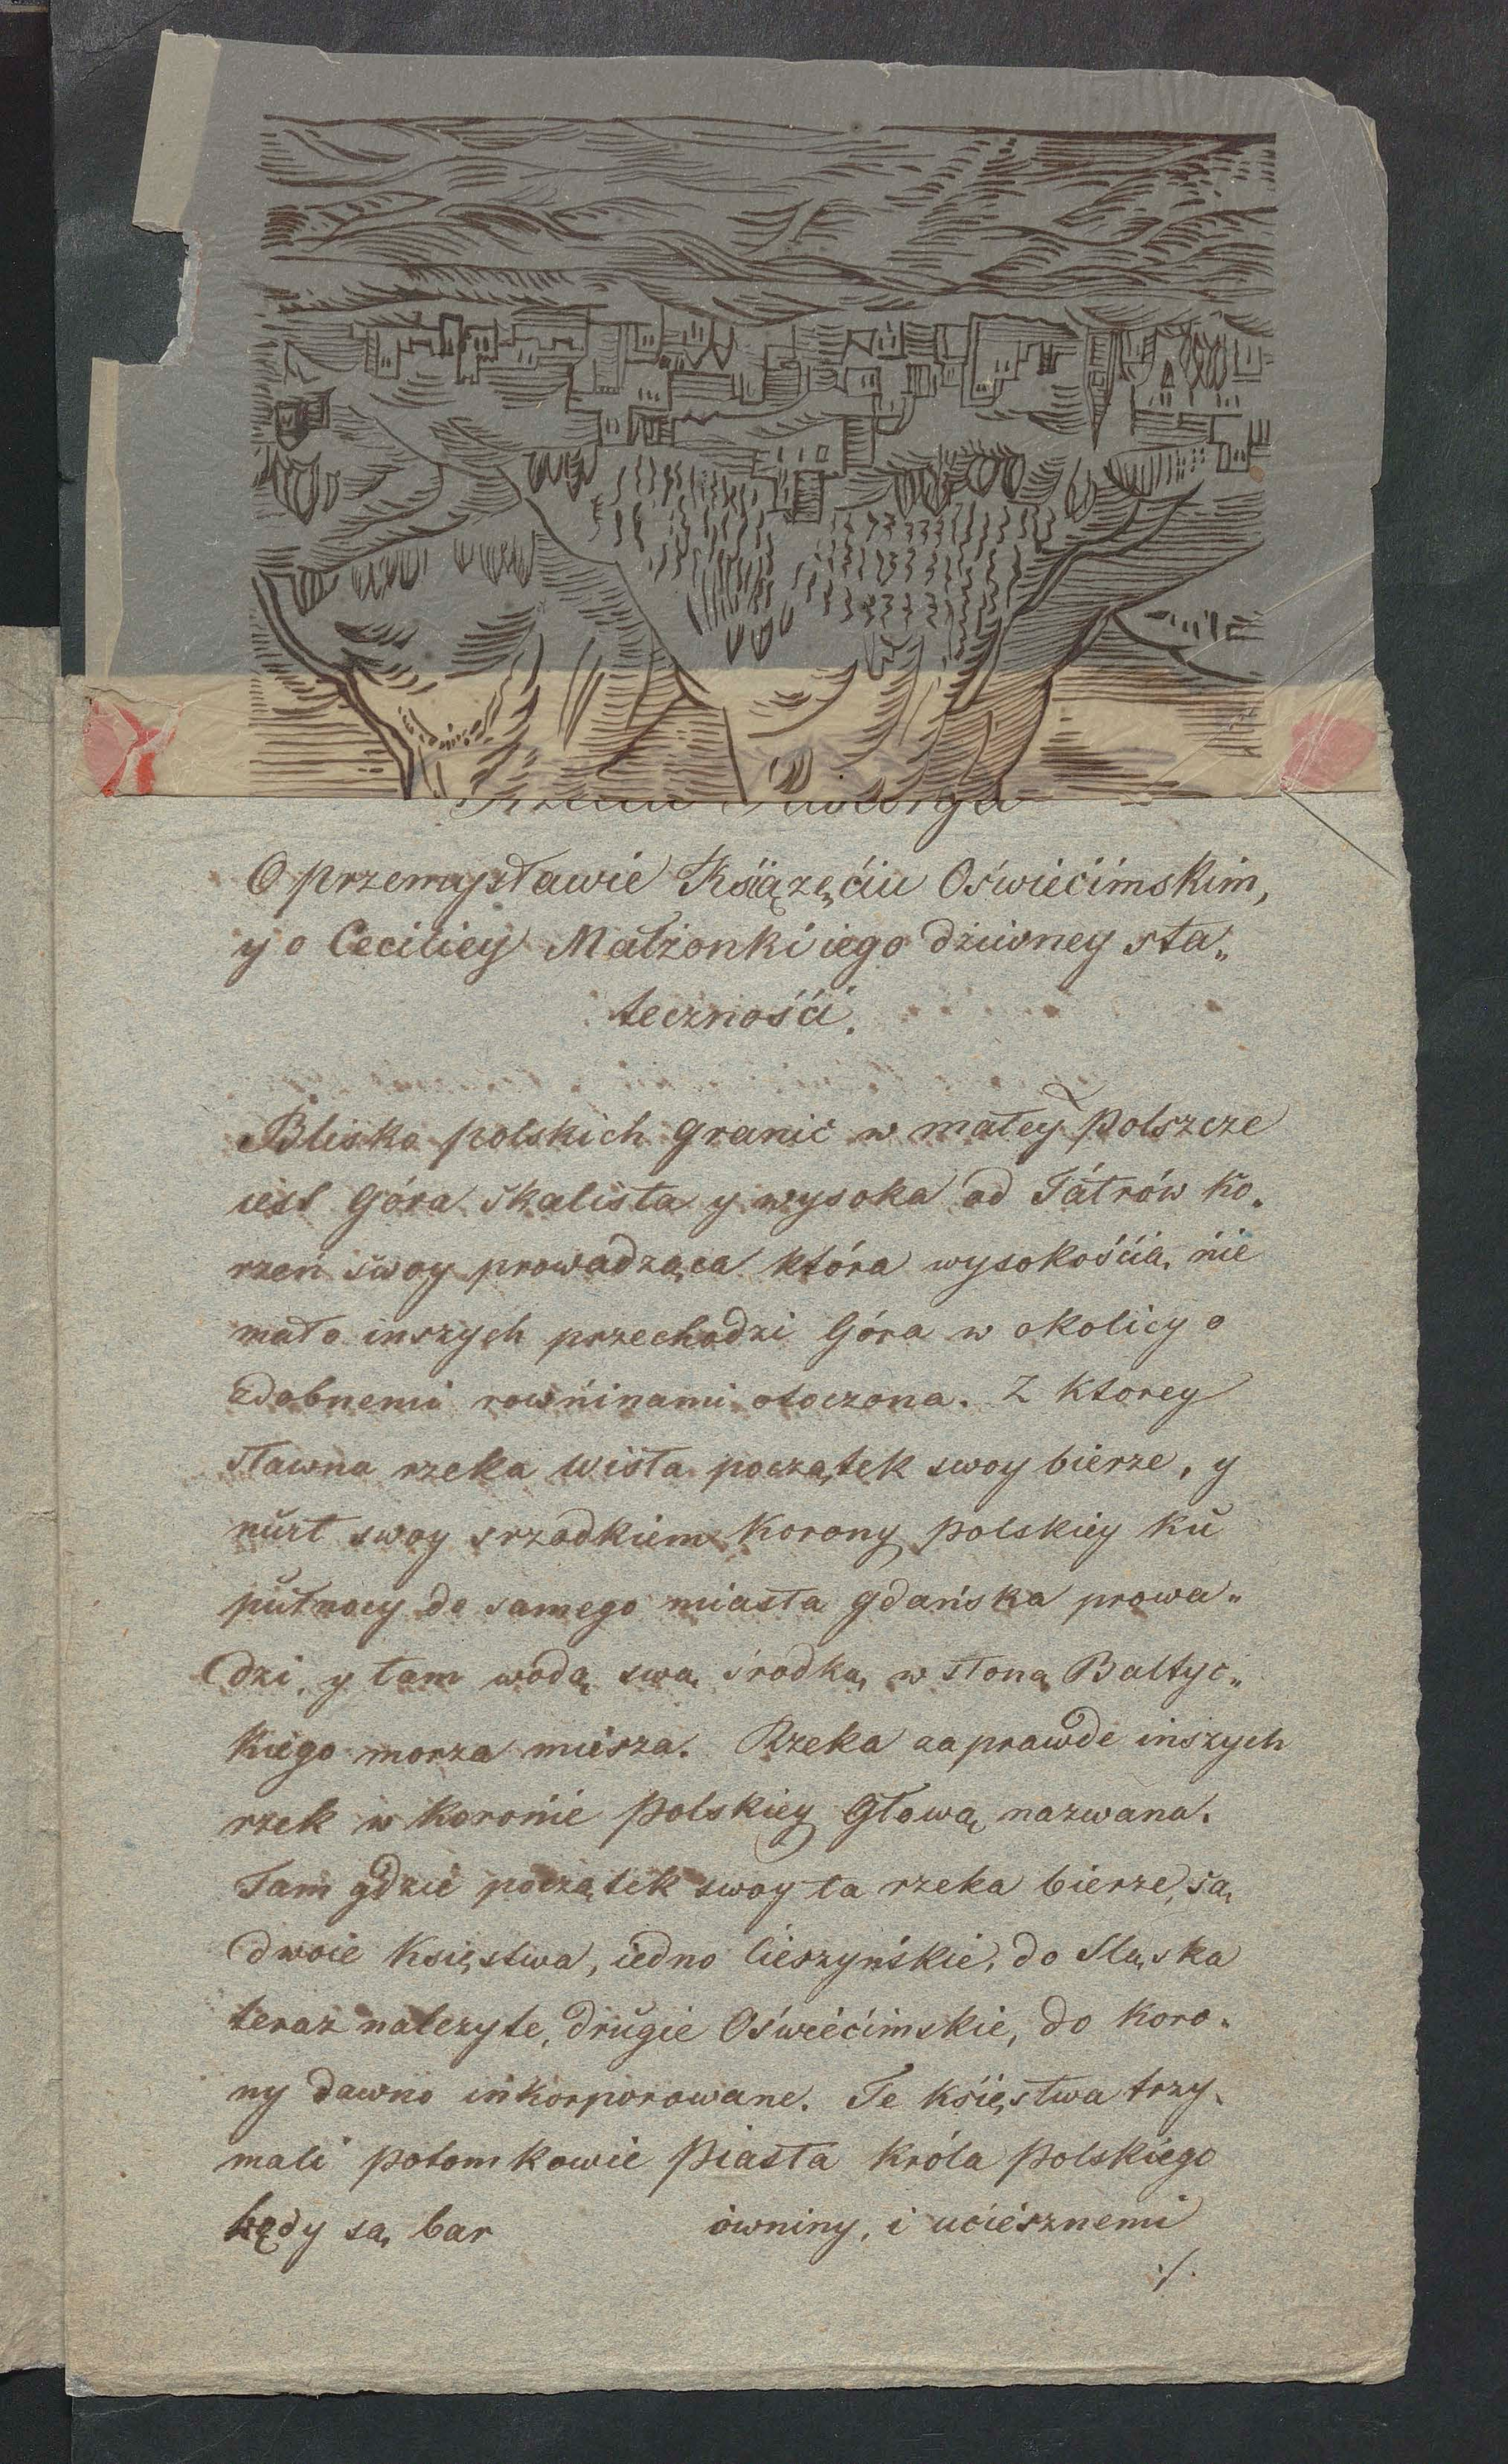 O przemysławie Książęćiu Oświećimskim,
y o Ceciliey Małżonki iego dziwney sta„
tecznośći.
Blisko polskich granic w małey Polszcze
iest Góra skalista y wysoka od Tátrów ko„
rzeń swoy prowadząca która wysokośćią nie
mało inszych przechodzi Góra w okolicy o
zdobnemi rowńinami otoczona. Z ktorey
sławna rzeka Wisła początek swoy bierze, y
nŭrt swoy srzodkiem Korony polskiey kŭ
pŭłnocy do samego miasta gdańska prowa„
dzi, y tam wodą swą srodką w słoną Baltyc„
kiego morza miesza. Rzeka zaprawde inszych
rzek w Koronie Polskiey Głową nazwana.
Tam gdzie początek swoy ta rzeka bierze, są
dwoie Księstwa, iedno Cieszyńskie, do Sląska
teraz nalezyte, drŭgie Oświećimskie, do Koro„
ny dawno inkorporowane. Te Księstwa trzy„
mali potomkowie Piasta Króla Polskiego
kędy są bar ówniny, i uciesznemi
./.